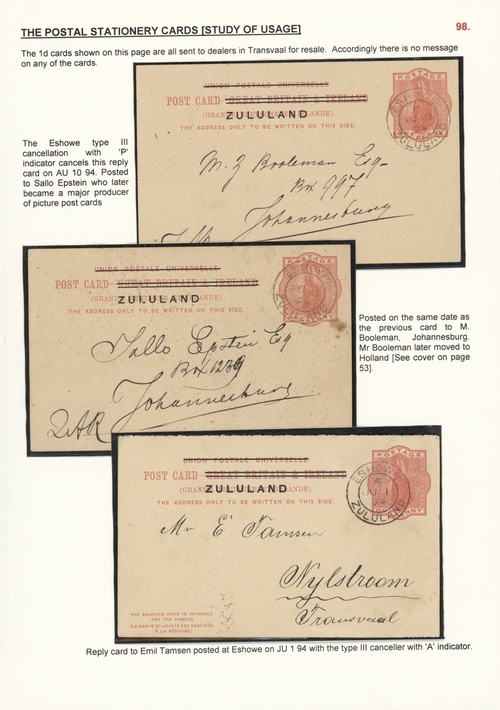 THE POSTAL STATIONERY CARDS [STUDY OF USAGE]
98.
The 1d cards shown on this page are all sent to dealers in Transvaal for resale. Accordingly there is no message
on any of the cards.
The Eshowe type III
cancellation with 'P'
indicator cancels this reply
card on AU 10 94. Posted
to Sallo Epstein who later
became a major producer
of picture post cards
UNION POSTALE UNIVERSELLE
POST CARD GREAT BRITAIN & IRELAND
ZULULAND
THE ADDRESS ONLY TO BE WRITTEN ON THIS SIDE.
POSTAGE
M. Z Booleman Esq
Box 997
Johannesburg
UNION POSTALE UNIVERSELLE
POST CARD GREAT BRITAIN & IRELAND
ZULULAND
THE ADDRESS ONLY TO BE WRITTEN ON THIS SIDE.
POSTAGE
Sallo Epstein Esq
Box 1239
Johannesburg
ZAR
Posted on the same date as
the previous card to M.
Booleman, Johannesburg.
Mr Booleman later moved to
Holland [See cover on page
53].
UNION POSTALE UNIVERSELLE
POST CARD GREAT BRITAIN & IRELAND
ZULULAND
THE ADDRESS ONLY TO BE WRITTEN ON THIS SIDE.
POSTAGE
ESHOWE
A
JU 1
94
ZULULAND
Mr E Tamsen
Nylstroom
Transvaal
THE ANNEXED CARD IS INTENDED
FOR THE ANSWER
(LA CARTE CI-JOINTE EST DESTINÉE
À LA RÉPONSE)
Reply card to Emil Tamsen posted at Eshowe on JU 1 94 with the type III canceller with 'A' indicator.